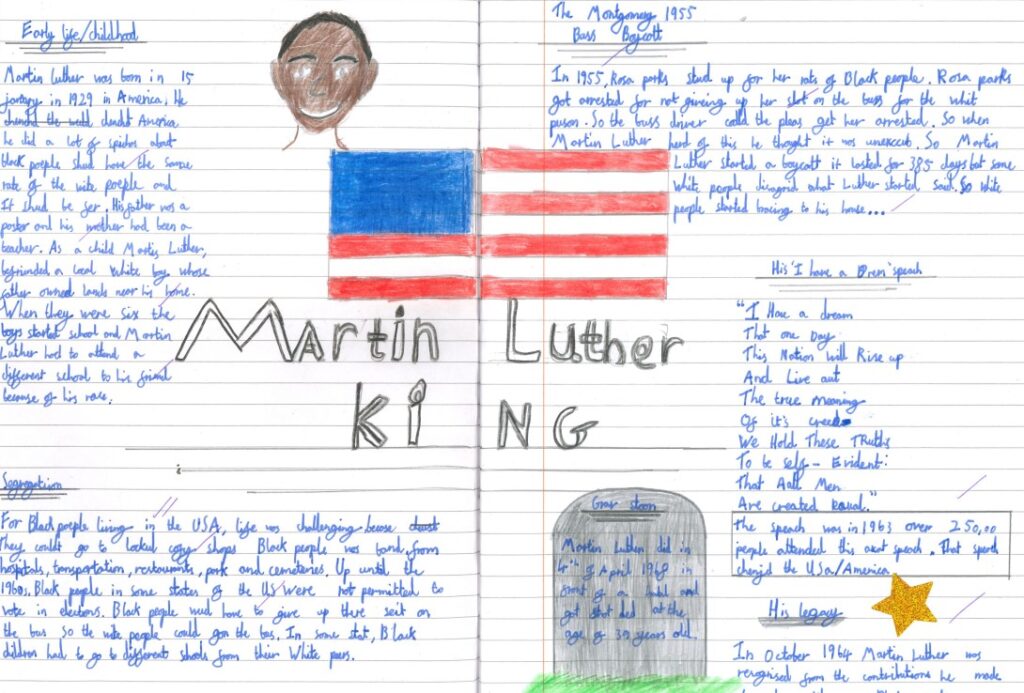 Early life/childhood
Martin Luther was born in 15
in 1929 in America. He
America
he did a lot of about
black people shud have the same
rate of the wite poeple and
It shud be fer. His father was a
paster and his mother had been a
teacher. As a child Martin Luther,
befriended a local white boy whose
father owned lands near his home.
When they were six the
boys started school and Martin
Luther had to attend a
different school to his friend
because of his race.
Segregation
For Black poeple living in the USA, life was challenging becose
they couldt go to shops Black people was band from
hospitals, transportation, restaurants, park and cemeteries. Up until the
1960s. Black people in some states of the US were not permitted to
vote in elections. Black people wud have to give up there seit on
the bus so the wite people could on the bus. In some stat, Black
children had to go to different shools from their White peers.
Martin Luther
KiNG
The Montgomery 1955
Buss Boycott
In 1955, Rosa parks stud up for her rats of Black people. Rosa parks
got arrested for not giveing up her on the buss for the whit
person. So the buss driver the get her arrested. So when
Martin Luther herd of this he thought it was . So Martin
Luther started a boycott it lasted for 385 days but some
white people what Luther started said. So white
people started to his house...
His 'I have a Drem' speach
"I Have a dream
That one Day
This Nation will Rise up
And Live out
The true meaning
Of it's creed
We Hold These TRuths
To be self-Evident:
That Aall Men
Are created Equal."
The speach was in 1963 over 250,00
people attended this speach. That speach
the USa/America.
Grav stoon
Martin Luther did in
4th of April 1968 in
front of a and
got shot ded at the
age of 39 years old.
His legacy
In October 1964 Martin Luther was
recognised from the contributions he made